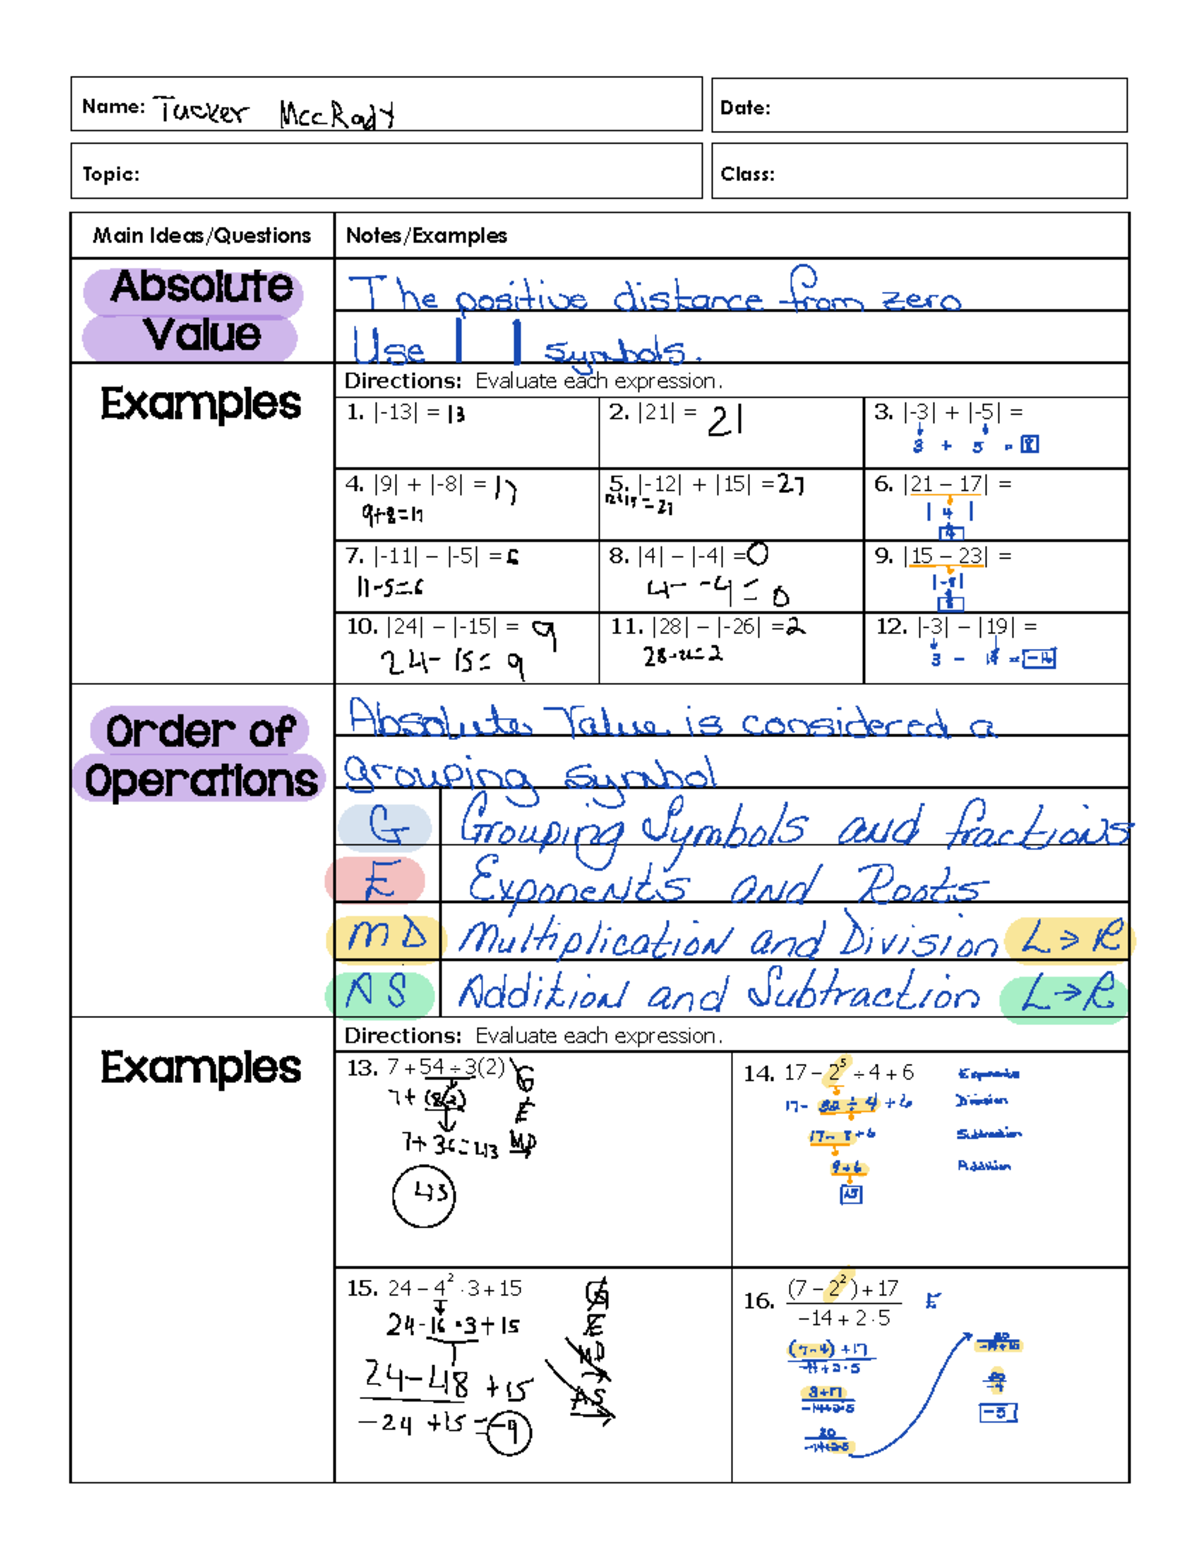 Name: Tucker MccRady
Date:
Topic:
Class:
Main Ideas/Questions
Notes/Examples
Absolute
Value
The positive distance from zero
Use | | symbols.
Examples
Directions: Evaluate each expression.
1. |-13| = 13
2. |21| = 21
3. |-3| + |-5| =
3 + 5 = 8
4. |9| + |-8| = 17
9+8=17
5. |-12| + |15| = 27
12+15=27
6. |21 – 17| =
| 4 |
4
7. |-11| – |-5| = 6
11-5=6
8. |4| – |-4| = 0
4- -4= 0
9. |15 – 23| =
|-8|
8
10. |24| – |-15| = 9
24-15= 9
11. |28| – |-26| = 2
28-26=2
12. |-3| – |19| =
3 - 19 = -16
Order of
Operations
Absolute Value is considered a
grouping symbol
G Grouping Symbols and fractions
E Exponents and Roots
MD Multiplication and Division L→R
AS Addition and Subtraction L→R
Examples
Directions: Evaluate each expression.
13. 7 + 54 ÷ 3(2) G
7+ (8(2) E
7+ 36=43 MD
43
14. 17 – 2⁵ ÷ 4 + 6 Exponents
17- 32 ÷ 4 + 6 Division
17- 8 +6 Subtraction
9+6 Addition
15
15. 24 – 4² · 3 + 15 G
24-16 · 3 + 15 E
MD
24-48 +15 AS
-24 +15 = -9
16. (7 – 2²) + 17 E
–14 + 2 · 5
(7-4) +17
-14+2·5
3+17
-14+2·5
20
-14+2·5
20
-14+10
20
-4
-5